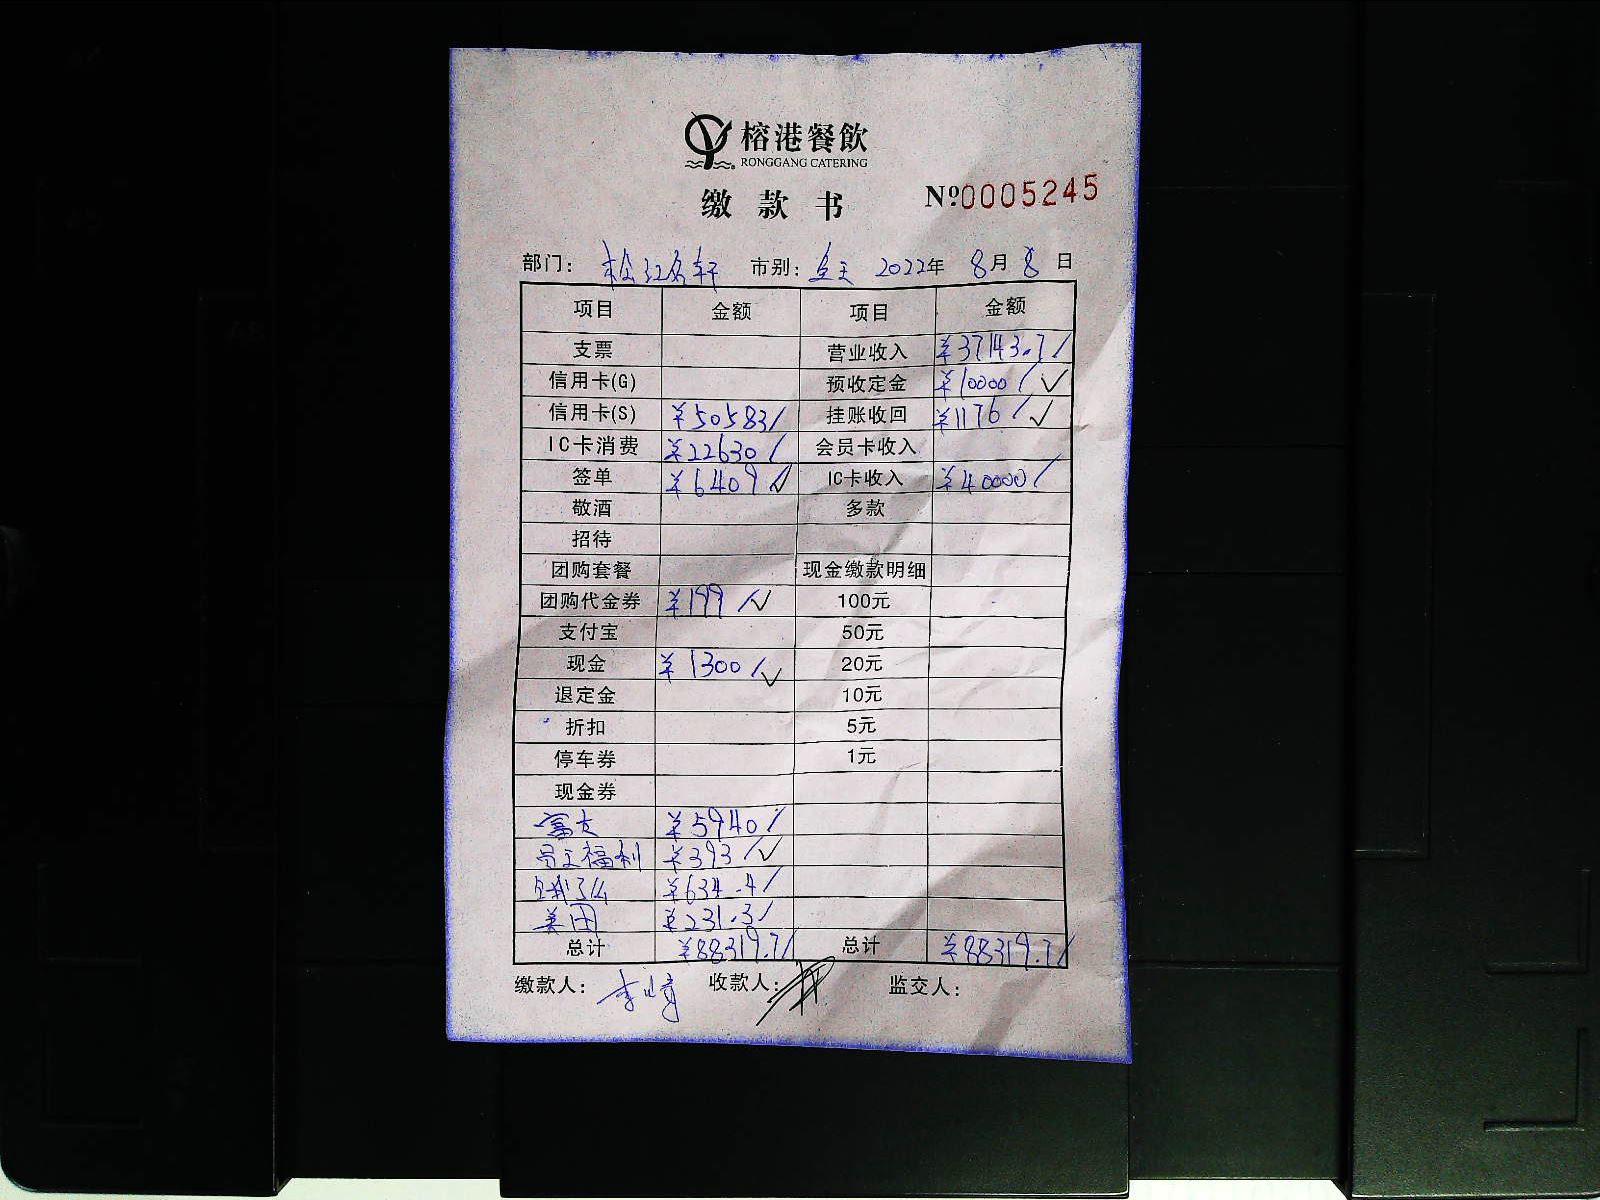 榕港餐飲
RONGGANG CATERING
缴款书 №0005245
部门: 松江名轩 市别: 全天 2022年 8月 8日
项目 金额 项目 金额
支票 营业收入 ¥37143.7/
信用卡(G) 预收定金 ¥10000/✓
信用卡(S) ¥50583/ 挂账收回 ¥1176/✓
IC卡消费 ¥22630/ 会员卡收入
签单 ¥6409/✓ IC卡收入 ¥40000/
敬酒 多款
招待
团购套餐 现金缴款明细
团购代金券 ¥199/✓ 100元
支付宝 50元
现金 ¥1300/✓ 20元
退定金 10元
折扣 5元
停车券 1元
现金券
¥5940/
员工福利 ¥393/✓
饿了么 ¥634.4/
美团 ¥231.3/
总计 ¥88319.7/ 总计 ¥88319.7/
缴款人: 收款人: 监交人: